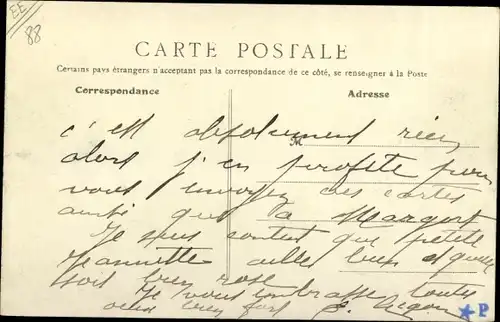 EE
88
CARTE POSTALE
Certains pays étrangers n'acceptant pas la correspondance de ce côté, se renseigner à la Poste
Correspondance
Adresse
M
c'est absolument rien
alors j'en profite pour
vous envoyer des cartes
ainsi que à Margot
Je suis content que petite
Jeannette aille bien et quelle
soit bien rose
Je vous embrasse toutes
deux bien fort
P